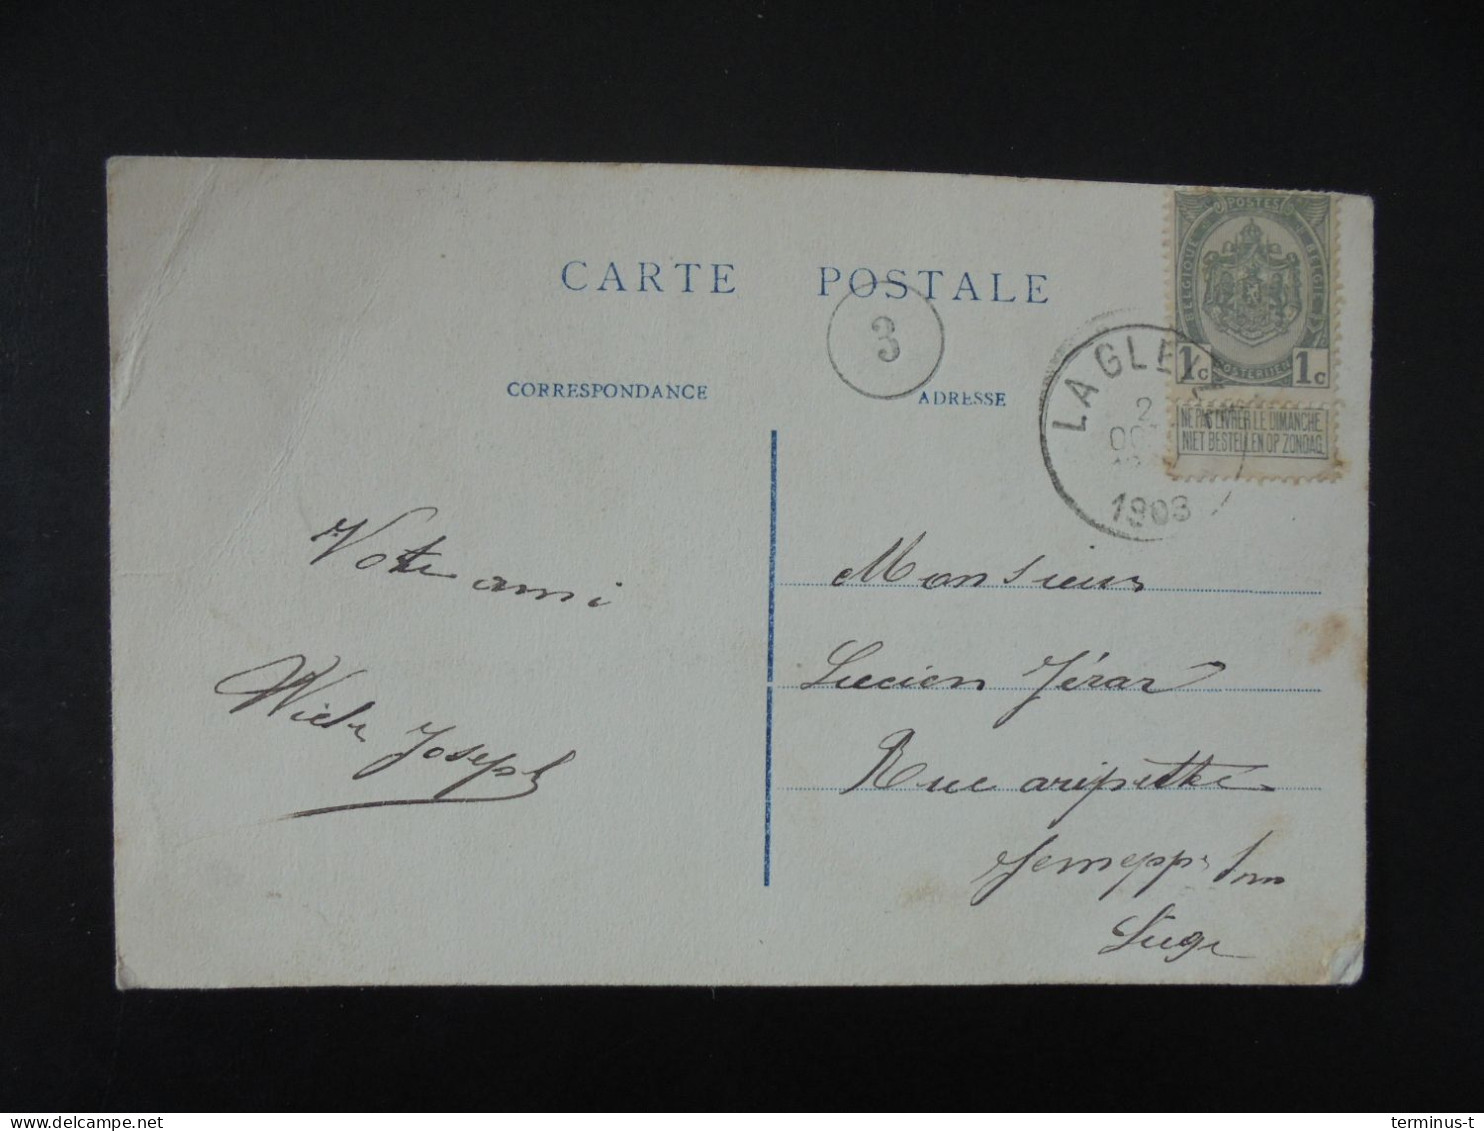 CARTE POSTALE
3
CORRESPONDANCE
ADRESSE
POSTES
BELGIQUE
BELGIE
1c 1c
NE PAS LIVRER LE DIMANCHE
NIET BESTELLEN OP ZONDAG
LA GLEI
2
OC
1908
Votre ami
Joseph
Monsieur
Lucien Jérar
Rue aripette
Jemeppe s/m
Liège
delcampe.net
terminus-t